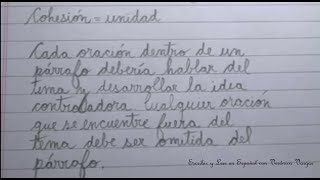 Cohesión = unidad
Cada oración dentro de un
párrafo debería hablar del
tema y desarrollar la idea
controladora cualquier oración
que se encuentre fuera del
tema debe ser omitida del
párrafo.
Escribir y Leer en Español con